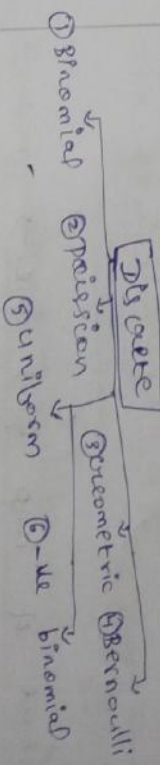 Discrete
① Binomial ② Poission ③ Geometric ④ Bernoulli
⑤ Uniform ⑥ -ve binomial